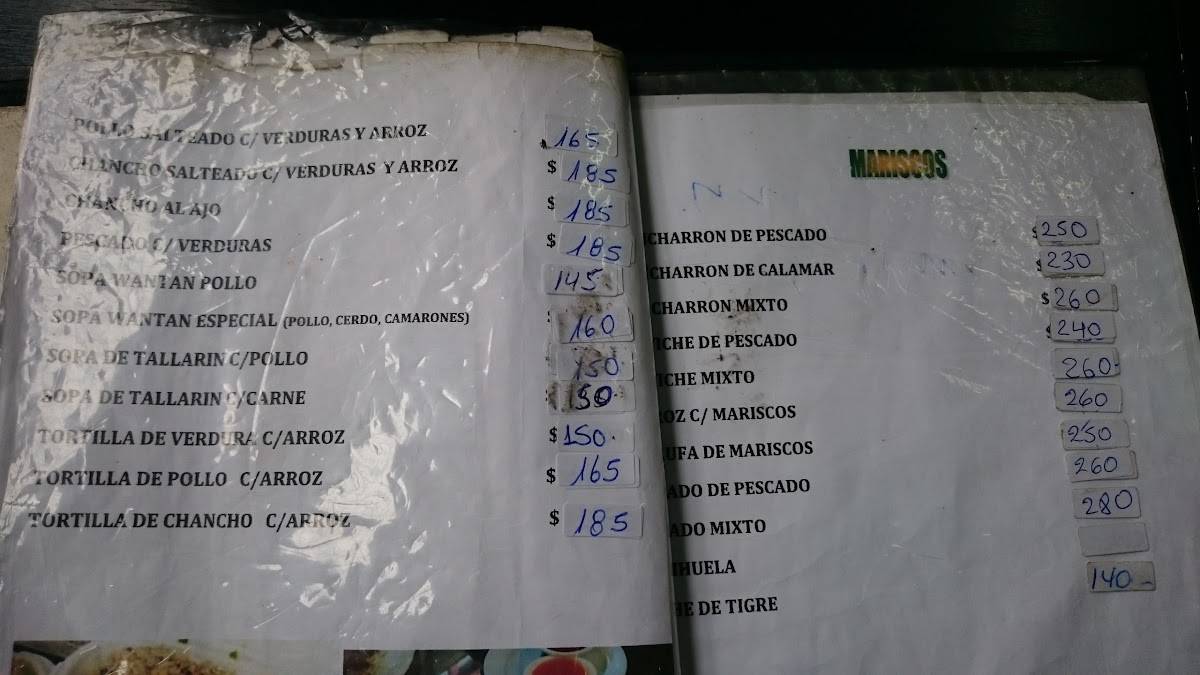 POLLO SALTEADO C/ VERDURAS Y ARROZ 165
CHANCHO SALTEADO C/ VERDURAS Y ARROZ $ 185
CHANCHO AL AJO $ 185
PESCADO C/ VERDURAS $ 185
SOPA WANTAN POLLO 145
SOPA WANTAN ESPECIAL (POLLO, CERDO, CAMARONES) 160
SOPA DE TALLARIN C/POLLO 150
SOPA DE TALLARIN C/CARNE 150
TORTILLA DE VERDURA C/ARROZ $ 150
TORTILLA DE POLLO C/ARROZ $ 165
TORTILLA DE CHANCHO C/ARROZ $ 185
MARISCOS
CHARRON DE PESCADO $ 250
CHARRON DE CALAMAR $ 230
CHARRON MIXTO $ 260
ICHE DE PESCADO $ 240
ICHE MIXTO 260
OZ C/ MARISCOS 260
UFA DE MARISCOS 250
ADO DE PESCADO 260
ADO MIXTO 280
IHUELA
HE DE TIGRE 140